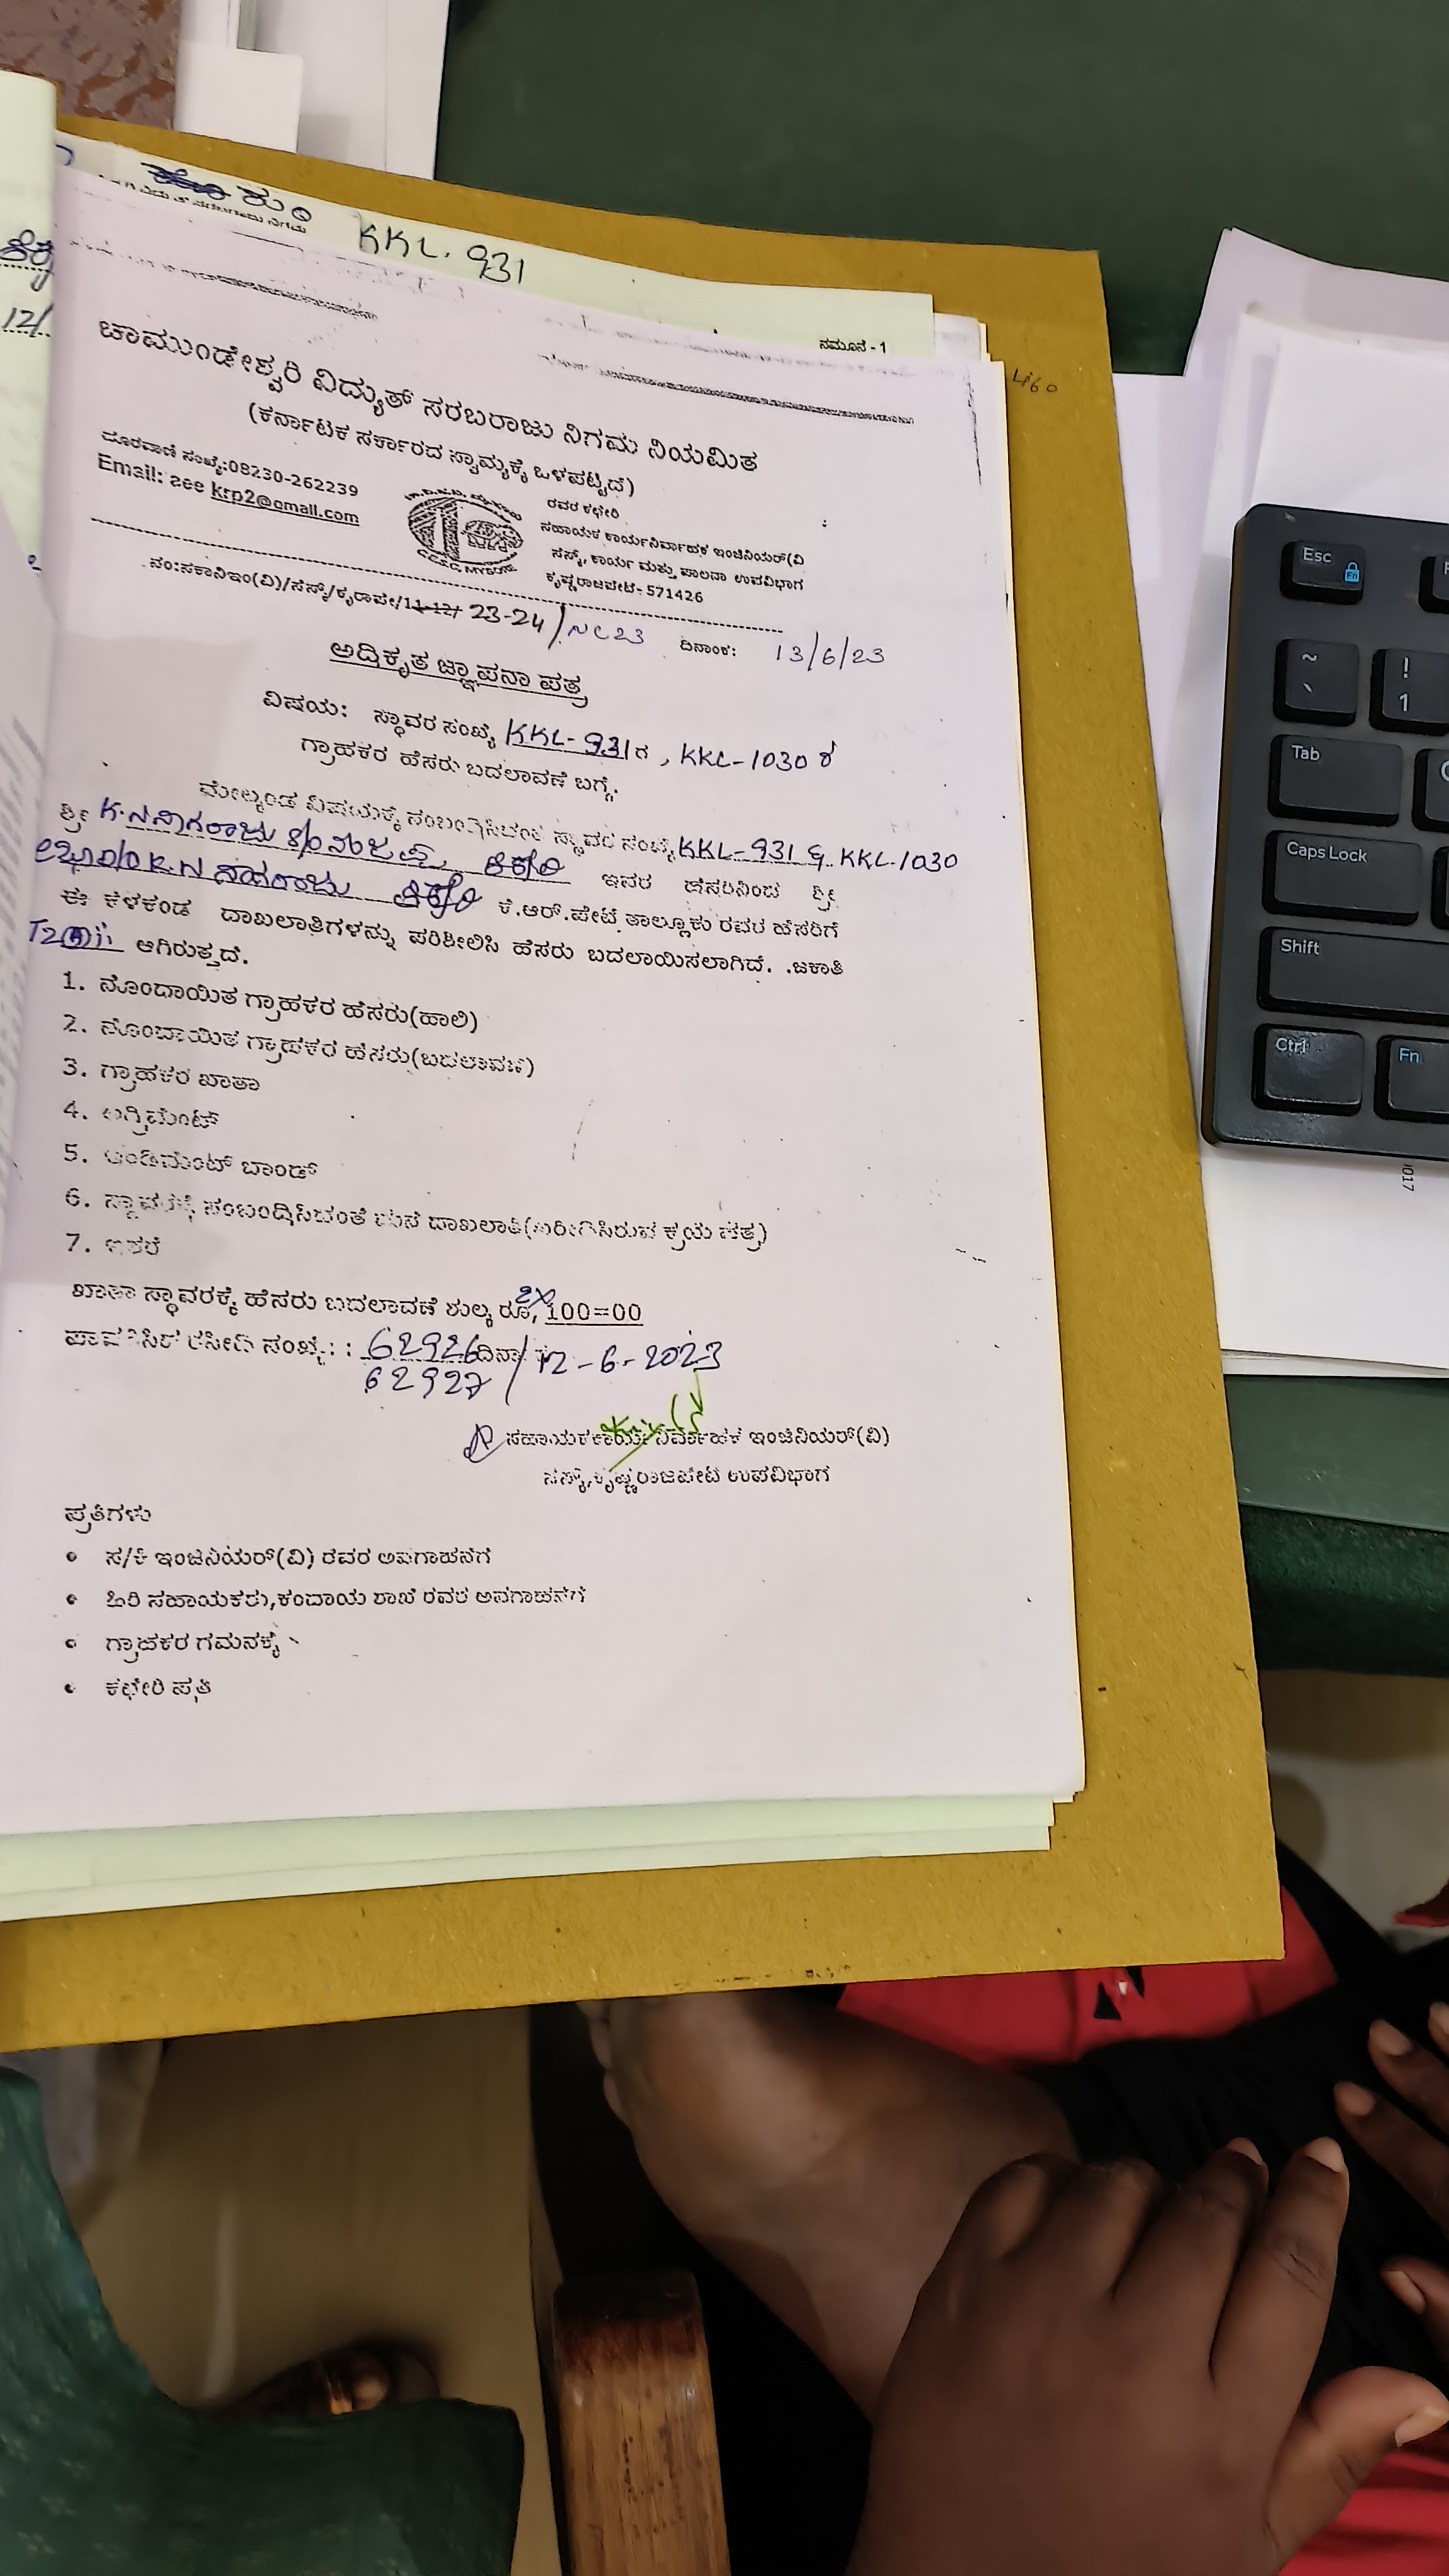 KKL. 931
12/
ನಮೂನೆ - 1
460
ಚಾಮುಂಡೇಶ್ವರಿ ವಿದ್ಯುತ್ ಸರಬರಾಜು ನಿಗಮ ನಿಯಮಿತ
(ಕರ್ನಾಟಕ ಸರ್ಕಾರದ ಸ್ವಾಮ್ಯಕ್ಕೆ ಒಳಪಟ್ಟಿದೆ)
ದೂರವಾಣಿ ಸಂಖ್ಯೆ:08230-262239
Email: aee krp2@gmail.com
ರವರ ಕಛೇರಿ :
ಸಹಾಯಕ ಕಾರ್ಯನಿರ್ವಾಹಕ ಇಂಜಿನಿಯರ್(ವಿ
ಸೆಸ್ಕ್, ಕಾರ್ಯ ಮತ್ತು ಪಾಲನಾ ಉಪವಿಭಾಗ
ಕೃಷ್ಣರಾಜಪೇಟೆ- 571426
ನಂ:ಸಕಾನಿಇಂ(ವಿ)/ಸೆಸ್ಕ್/ಕೃರಾಪೇ/11-12/ 23-24/NC23 ದಿನಾಂಕ: 13/6/23
ಅಧಿಕೃತ ಜ್ಞಾಪನಾ ಪತ್ರ
ವಿಷಯ: ಸ್ಥಾವರ ಸಂಖ್ಯೆ KKL- 931ರ , KKL-1030 ರ
ಗ್ರಾಹಕರ ಹೆಸರು ಬದಲಾವಣೆ ಬಗ್ಗೆ.
ಮೇಲ್ಕಂಡ ವಿಷಯಕ್ಕೆ ಸಂಬಂಧಿಸಿದಂತೆ ಸ್ಥಾವರ ಸಂಖ್ಯೆ KKL-931 & KKL-1030
ಶ್ರೀ ಇವರ ಹೆಸರಿನಿಂದ ಶ್ರೀ
ಕೆ.ಆರ್.ಪೇಟೆ ತಾಲ್ಲೂಕು ರವರ ಹೆಸರಿಗೆ
ಈ ಕೆಳಕಂಡ ದಾಖಲಾತಿಗಳನ್ನು ಪರಿಶೀಲಿಸಿ ಹೆಸರು ಬದಲಾಯಿಸಲಾಗಿದೆ. .ಜಕಾತಿ
ಆಗಿರುತ್ತದೆ.
1. ನೊಂದಾಯಿತ ಗ್ರಾಹಕರ ಹೆಸರು(ಹಾಲಿ)
2. ನೊಂದಾಯಿತ ಗ್ರಾಹಕರ ಹೆಸರು(ಬದಲಾವಣೆ)
3. ಗ್ರಾಹಕರ ಖಾತಾ
4. ಅಗ್ರಿಮೆಂಟ್
5. ಇಂಡಿಮೆಂಟ್ ಬಾಂಡ್
6. ಸ್ಥಾವರಕ್ಕೆ ಸಂಬಂಧಿಸಿದಂತೆ ಮನೆ ದಾಖಲಾತಿ(ಖರೀದಿಸಿರುವ ಕ್ರಯ ಪತ್ರ)
7. ಇತರೆ
ಖಾತಾ ಸ್ಥಾವರಕ್ಕೆ ಹೆಸರು ಬದಲಾವಣೆ ಶುಲ್ಕ ರೂ, 2X 100=00
ಪಾವತಿಸಿದ ರಸೀದಿ ಸಂಖ್ಯೆ: : 62926 ದಿನಾ / 12-6-2023
62927
ಸಹಾಯಕ ಕಾರ್ಯನಿರ್ವಾಹಕ ಇಂಜಿನಿಯರ್(ವಿ)
ಸೆಸ್ಕ್,ಕೃಷ್ಣರಾಜಪೇಟೆ ಉಪವಿಭಾಗ
ಪ್ರತಿಗಳು
• ಸ/ಕಿ ಇಂಜಿನಿಯರ್(ವಿ) ರವರ ಅವಗಾಹನೆಗೆ
• ಹಿರಿ ಸಹಾಯಕರು,ಕಂದಾಯ ಶಾಖೆ ರವರ ಅವಗಾಹನೆಗೆ
• ಗ್ರಾಹಕರ ಗಮನಕ್ಕೆ
• ಕಛೇರಿ ಪ್ರತಿ
Esc
Fn
~
`
!
1
Tab
Caps Lock
Shift
Ctrl
Fn